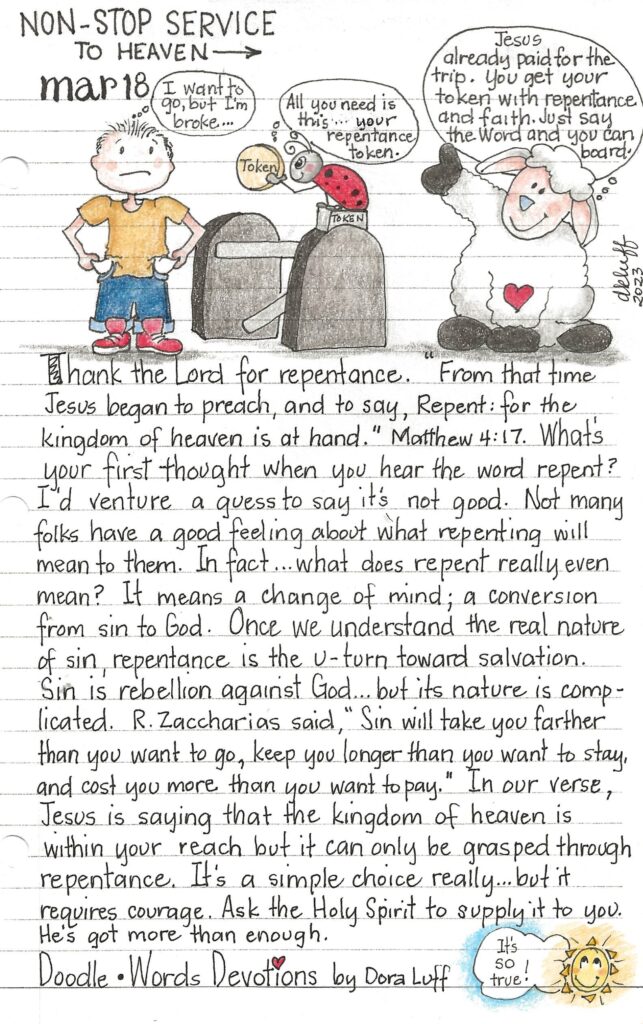 NON-STOP SERVICE
TO HEAVEN →
mar 18
I want to
go, but I'm
broke...
All you need is
this... your
repentance
token.
Jesus
already paid for the
trip. You get your
token with repentance
and faith. Just say
the Word and you can
board!
Token
TOKEN
dkluff
2023
Thank the Lord for repentance. "From that time
Jesus began to preach, and to say, Repent: for the
kingdom of heaven is at hand." Matthew 4:17. What's
your first thought when you hear the word repent?
I'd venture a guess to say it's not good. Not many
folks have a good feeling about what repenting will
mean to them. In fact...what does repent really even
mean? It means a change of mind; a conversion
from sin to God. Once we understand the real nature
of sin, repentance is the U-turn toward salvation.
Sin is rebellion against God...but its nature is comp-
licated. R. Zaccharias said, "Sin will take you farther
than you want to go, keep you longer than you want to stay,
and cost you more than you want to pay." In our verse,
Jesus is saying that the kingdom of heaven is
within your reach but it can only be grasped through
repentance. It's a simple choice really...but it
requires courage. Ask the Holy Spirit to supply it to you.
He's got more than enough.
Doodle • Words Devotions by Dora Luff
It's
so
true!